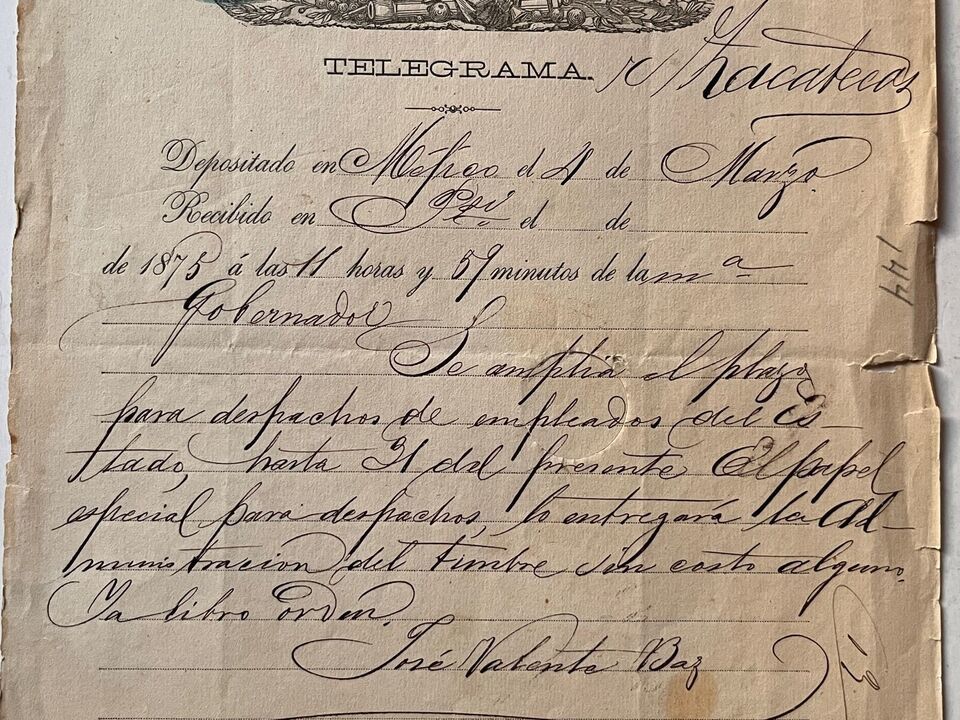 TELEGRAMA. Zacatecas
Depositado en Méjico el 4 de Marzo
Recibido en el de
de 1875 á las 11 horas y 59 minutos de la mª
Gobernador
Se amplia el plazo
para despachos de empleados del Es-
tado, hasta 31 del presente El papel
especial para despachos, lo entregará la Ad-
ministracion del timbre sin costo alguno.
Ya libro orden.
José Valente Baz
144